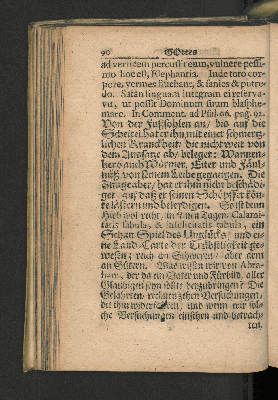 90 GOttes
ad verticem percussit eum, vulnere pessi-
mo hoc est, Elephantia. Inde toto cor-
pore, vermes fuerunt, & sanies & putre-
do. Satan linguam integram ei reserva-
vit, ut posset Dominum suum blasphe-
mare. In Comment. ad Psal. 66. pag. 92.
Von der Fußsohlen an/ biß auf die
Scheitel hat er ihn mit einer schmertz-
lichen Kranckheit/ die nicht weit von
dem Aussatze ab/ beleget: Wannen-
hero auch Würmer, Eiter und Fäul-
nüß von seinem Leibe gegangen. Die
Zunge aber/ hat er ihm nicht beschädi-
get/ auf daß er seinen Schöpffer kön-
te lästern und beleidigen. So ist denn
Hiob wol recht, in seinen Tagen, Calami-
tatis fabula, & infelicitatis tabula, ein
Schau-Spiel des Unglücks/ und ei-
ne Land-Carte der Trübseligkeit ge-
wesen; reich an Schweren/ aber arm
an Gütern. Was wissen wir von Abra-
ham, der da ein Vater und Fürbild, aller
Gläubigen seyn solte, vorzubringen? Die
Gelehrten, rechnen zehen Versuchungen/
die ihm widerfahren/ und wenn wir sol-
che Versuchungen einsehen und betrach-
ten,